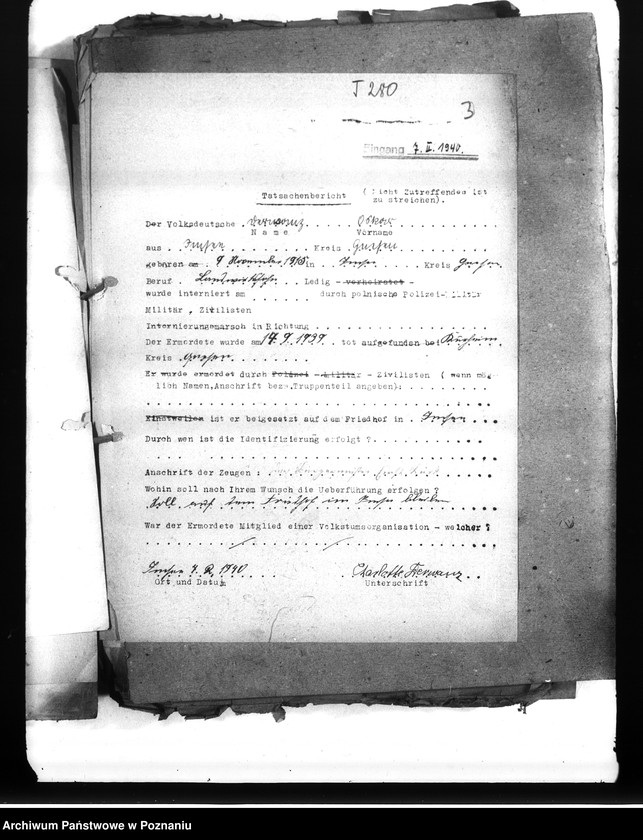 J 280
3
Eingang 7. II. 1940.
Tatsachenbericht ( Nicht Zutreffendes ist
zu streichen).
Der Volksdeutsche . . . . . . Oskar . . . .
N a m e Vorname
aus . . Jmsen . . . . . . . . . Kreis Gnesen . . . . . . .
geboren am . 9 November 1915 in . . Jmsen . . . . Kreis Gnesen
Beruf . . . . . Ledig - verheiratet -
wurde interniert am . . . . . . . durch polnische Polizei-Militär
Militär , Zivilisten
Internierungsmarsch in Richtung . . . . . . . . . . . . . . . .
Der Ermordete wurde am 17. 9. 1939 . . tot aufgefunden bei
Kreis . Gnesen . . . . . . . .
Er wurde ermordet durch Polizei - Militär - Zivilisten ( wenn mög-
lich Namen,Anschrift bezw.Truppenteil angeben): . . . . . . . .
. . . . . . . . . . . . . . . . . . . . . . . . . . . . . . . .
Einstweilen ist er beigesetzt auf dem Friedhof in . Jmsen . . .
Durch wen ist die Identifizierung erfolgt ? . . . . . . . . . .
. . . . . . . . . . . . . . . . . . . . . . . . . . . .
Anschrift der Zeugen :
Wohin soll nach Ihrem Wunsch die Ueberführung erfolgen ?
Soll auf dem Friedhof in Jmsen bleiben
War der Ermordete Mitglied einer Volkstumsorganisation - welcher ?
. . . . . . . . . . . . . . . . . . . . . . . . . . . . . . . .
Jmsen 4. 2. 1940 . . . . Charlotte . .
Ort und Datum Unterschrift
Archiwum Państwowe w Poznaniu